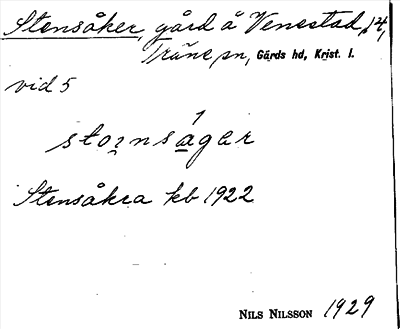 Stensåker, gård å Venestad 14,
Träne sn, Gärds hd, Krist. l.
vid 5
stoi̯nságar
Stensåkra kb 1922
NILS NILSSON 1929